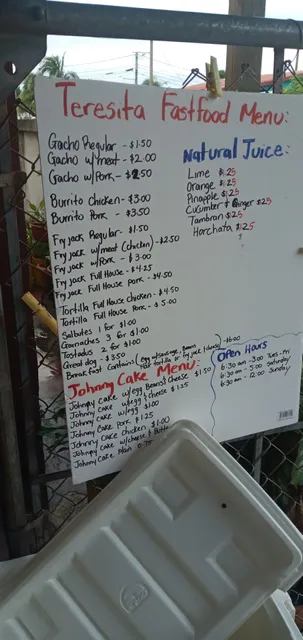 Teresita Fastfood Menu:
Gacho Regular - $1.50
Gacho w/meat - $2.00
Gacho w/Pork - $2.50
Burrito Chicken - $3.00
Burrito Pork - $3.50
Fry jack Regular - $1.50
Fry jack w/meat (chicken) - $2.50
Fry jack w/Pork - $3.00
Fry jack Full House - $4.25
Fry jack Full House Pork - $4.50
Tortilla Full House chicken - $4.50
Tortilla Full House Pork - $5.00
Salbutes 1 for $1.00
Garnaches 3 for $1.00
Tostados 2 for $1.00
Great dog - $3.50
Breakfast contains (Egg w/sausage, Beans
Natural Juice:
Lime $1.25
Orange $1.25
Pinapple $1.25
Cucumber & Ginger $1.25
Tambran $1.25
Horchata $1.25
Johnny Cake Menu:
Johnny Cake w/egg Beans & cheese $1.50
Johnny Cake w/egg & cheese $1.25
Johnny Cake w/egg $1.00
Johnny Cake Pork $1.25
Johnny Cake chicken $1.00
Johnny Cake w/cheese & Butter
Johnny Cake Plain 0.75
Open Hours
6:30 am - 3:00 Tues - Fri
6:30 am - 5:00 Saturday
6:30 am - 12:00 Sunday